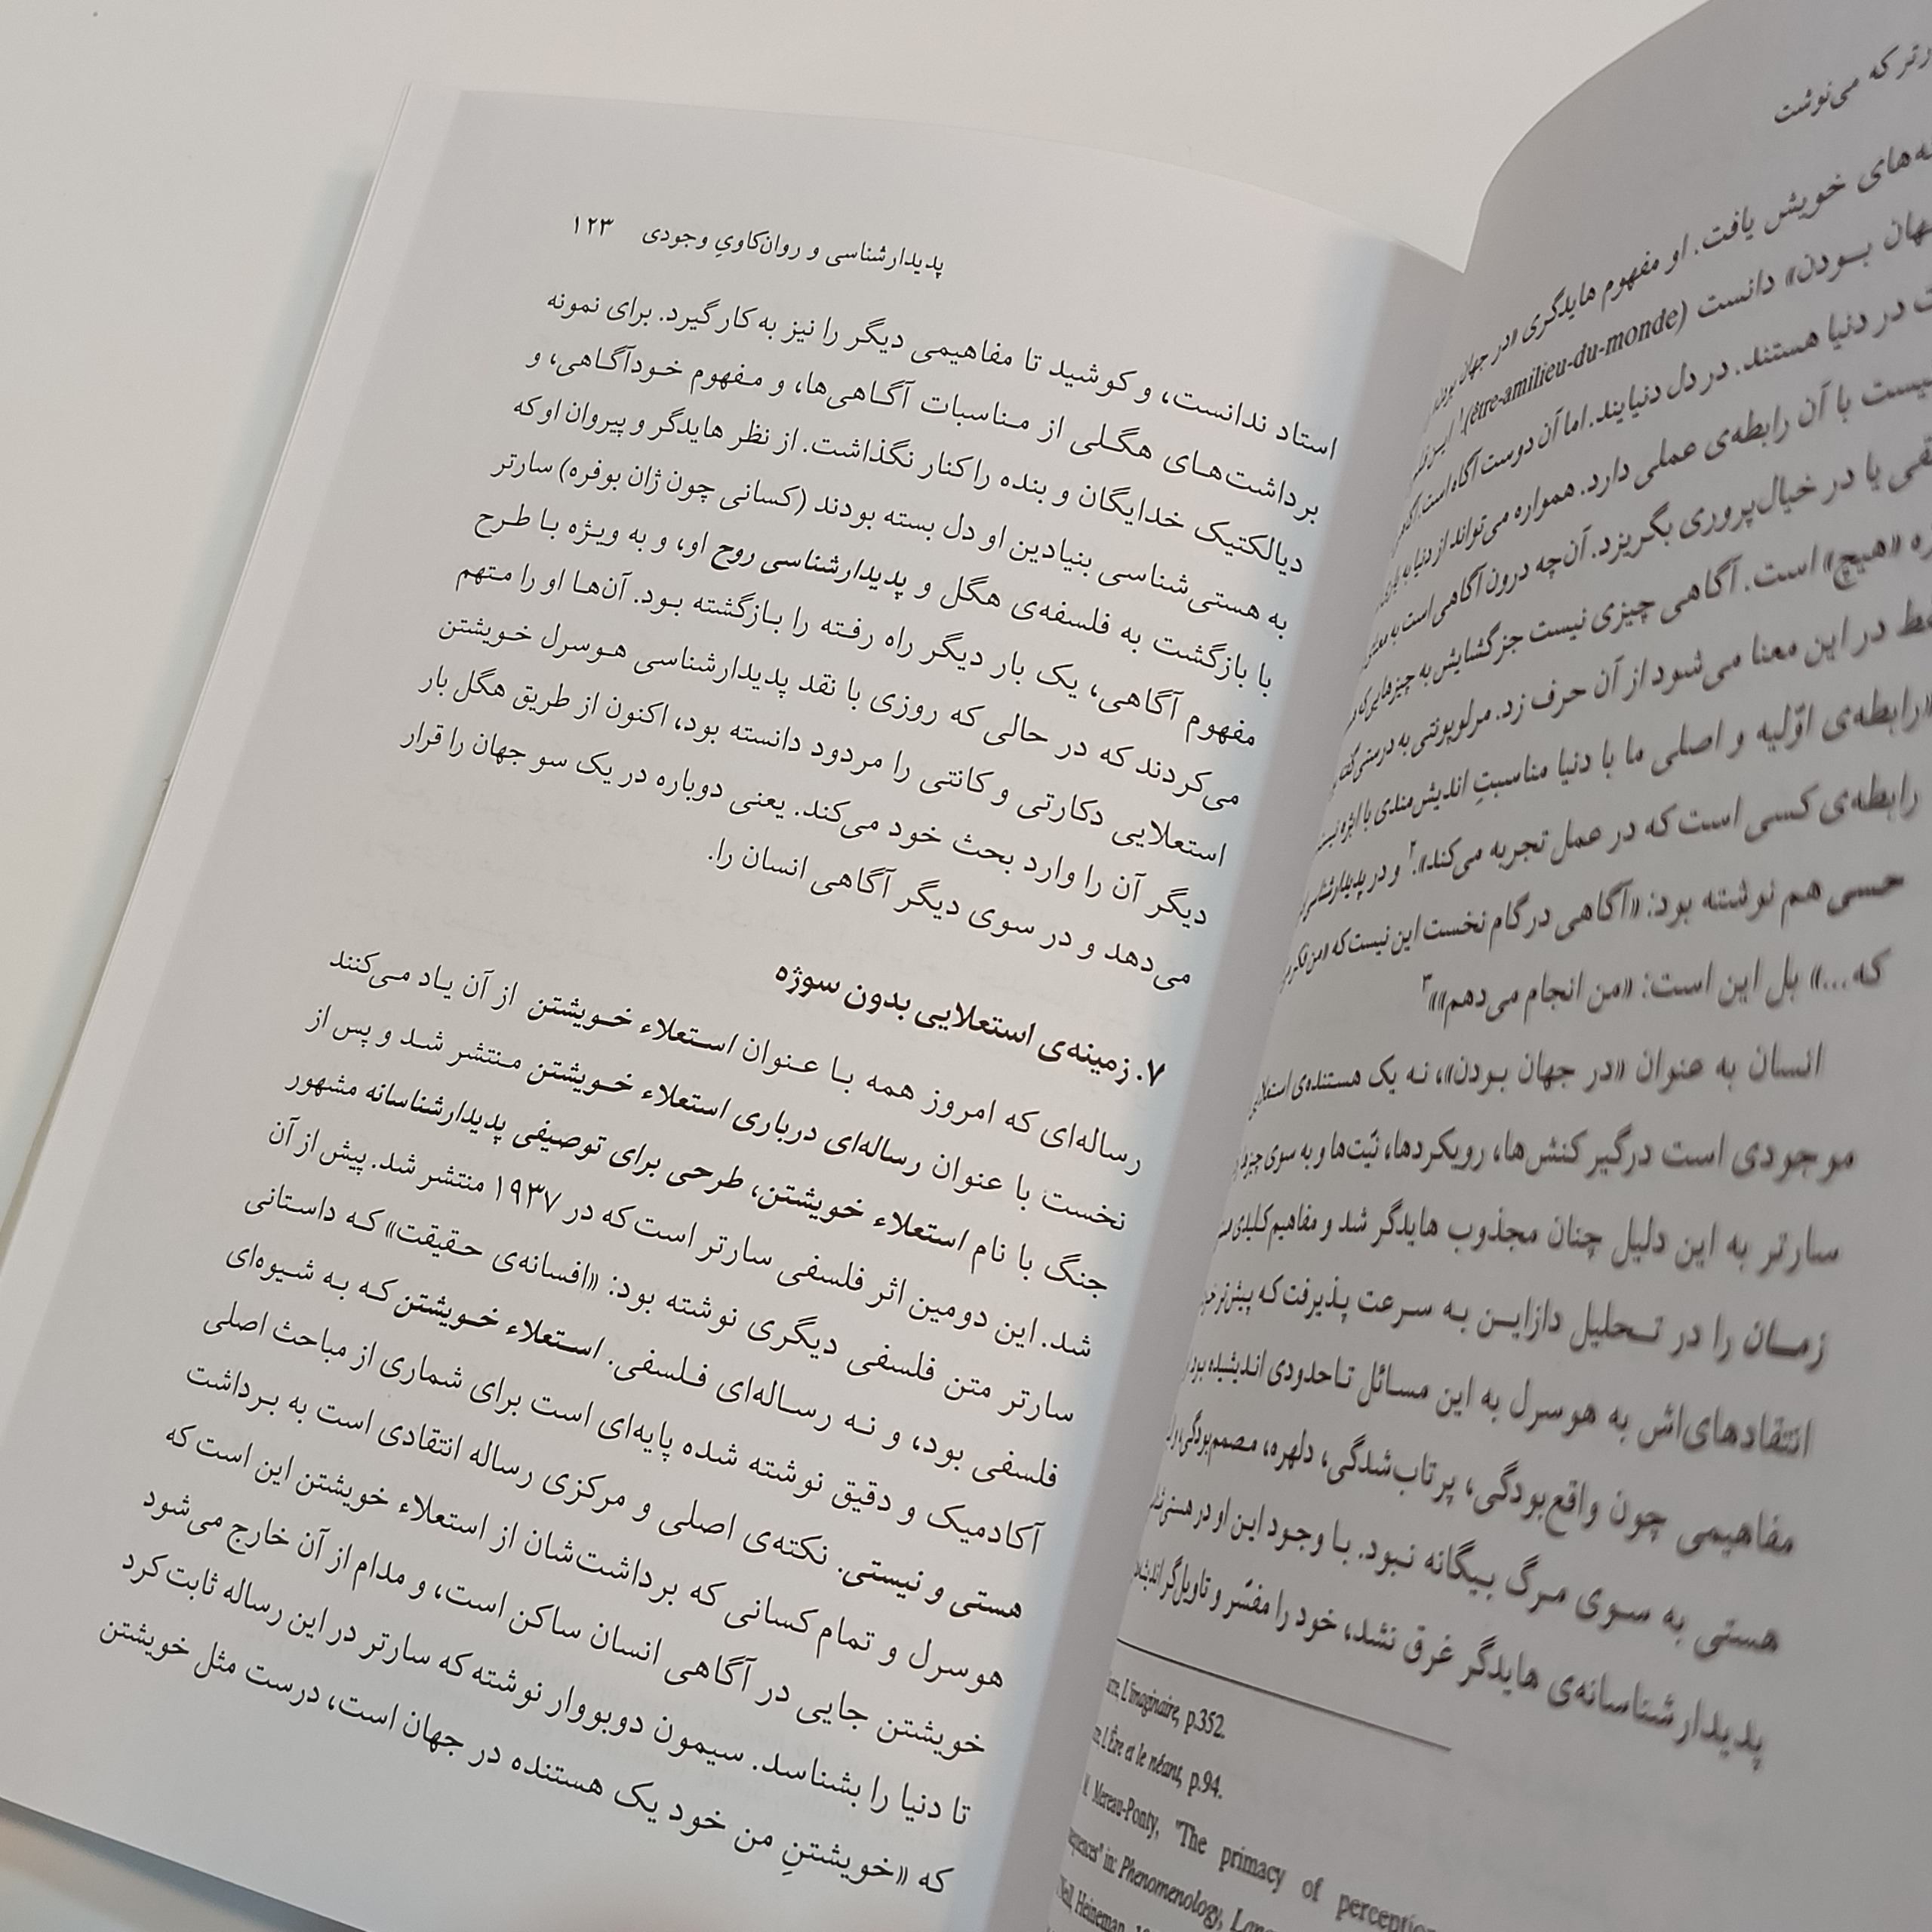 رتر که می‌نوشت
ه‌های خویش یافت. او مفهوم هایدگری «در جهان بودن»
هان بودن» دانست (être-amilieu-du-monde).۱ این
ت در دنیا هستند. در دل دنیایند. اما آن دوست آگاه است،
نیست با آن رابطه‌ی عملی دارد. همواره می‌تواند از دنیا به
قی یا در خیال‌پروری بگریزد. آن‌چه درون آگاهی است به معنی
ره «هیچ» است. آگاهی چیزی نیست جز گشایش به چیزهایی که
قط در این معنا می‌شود از آن حرف زد. مرلوپونتی به درستی گفته
«رابطه‌ی اوّلیه و اصلی ما با دنیا مناسبتِ اندیش‌مندی با ابژه نیست
رابطه‌ی کسی است که در عمل تجربه می‌کند».۲ و در پدیدارشناسی
حسی هم نوشته بود: «آگاهی در گام نخست این نیست که «من فکر
که...» بل این است: «من انجام می‌دهم»»۳
انسان به عنوان «در جهان بودن»، نه یک هستنده‌ی استعلایی
موجودی است درگیر کنش‌ها، رویکردها، نیّت‌ها و به سوی چیزها
سارتر به این دلیل چنان مجذوب هایدگر شد و مفاهیم کلیدی
زمان را در تحلیل دازاین به سرعت پذیرفت که پیش‌تر خود
انتقادهای‌اش به هوسرل به این مسائل تاحدودی اندیشیده بود
مفاهیمی چون واقع‌بودگی، پرتاب‌شدگی، دلهره، مصمم‌بودگی و
هستی به سوی مرگ بیگانه نبود. با وجود این او در هستی
پدیدارشناسانه‌ی هایدگر غرق نشد، خود را مفسّر و تاویل‌گر
L'imaginaire, p.352.
L'Être et le néant, p.94.
M. Mereau-Ponty, "The primacy of perception
in: Phenomenology,
Heineman,
پدیدارشناسی و روان‌کاویِ وجودی ۱۲۳
استاد ندانست، و کوشید تا مفاهیمی دیگر را نیز به کار گیرد. برای نمونه
برداشت‌های هگلی از مناسبات آگاهی‌ها، و مفهوم خودآگاهی، و
دیالکتیک خدایگان و بنده را کنار نگذاشت. از نظر هایدگر و پیروان او که
به هستی‌شناسی بنیادین او دل بسته بودند (کسانی چون ژان بوفره) سارتر
با بازگشت به فلسفه‌ی هگل و پدیدارشناسی روح او، و به ویژه با طرح
مفهوم آگاهی، یک بار دیگر راه رفته را بازگشته بود. آن‌ها او را متهم
می‌کردند که در حالی که روزی با نقد پدیدارشناسی هوسرل خویشتن
استعلایی دکارتی و کانتی را مردود دانسته بود، اکنون از طریق هگل بار
دیگر آن را وارد بحث خود می‌کند. یعنی دوباره در یک سو جهان را قرار
می‌دهد و در سوی دیگر آگاهی انسان را.
۷. زمینه‌ی استعلایی بدون سوژه
رساله‌ای که امروز همه با عنوان استعلاء خویشتن از آن یاد می‌کنند
نخست با عنوان رساله‌ای درباری استعلاء خویشتن منتشر شد و پس از
جنگ با نام استعلاء خویشتن، طرحی برای توصیفی پدیدارشناسانه مشهور
شد. این دومین اثر فلسفی سارتر است که در ۱۹۳۷ منتشر شد. پیش از آن
سارتر متن فلسفی دیگری نوشته بود: «افسانه‌ی حقیقت» که داستانی
فلسفی بود، و نه رساله‌ای فلسفی. استعلاء خویشتن که به شیوه‌ای
آکادمیک و دقیق نوشته شده پایه‌ای است برای شماری از مباحث اصلی
هستی و نیستی. نکته‌ی اصلی و مرکزی رساله انتقادی است به برداشت
هوسرل و تمام کسانی که برداشت‌شان از استعلاء خویشتن این است که
خویشتن جایی در آگاهی انسان ساکن است، و مدام از آن خارج می‌شود
تا دنیا را بشناسد. سیمون دوبووار نوشته که سارتر در این رساله ثابت کرد
که «خویشتنِ من خود یک هستنده در جهان است، درست مثل خویشتن